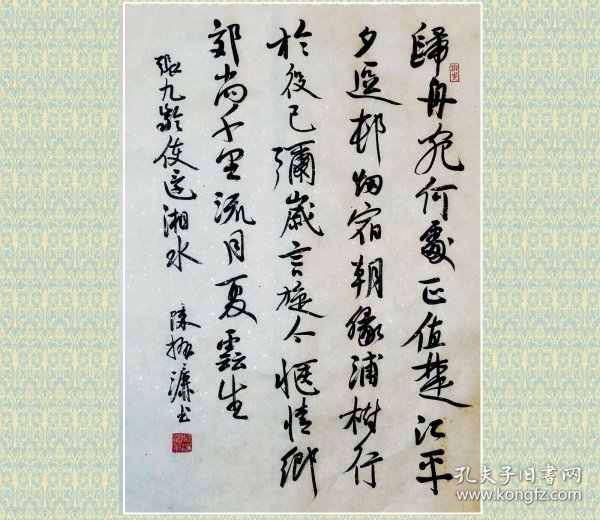 歸舟宛何處正值楚江平
夕逗邨烟宿朝緣浦樹行
於役已彌歲言旋今愜情鄉
郊尚千里流目夏雲生
張九齡使還湘水
陳振濂書
孔夫子旧书网
www.kongfz.com